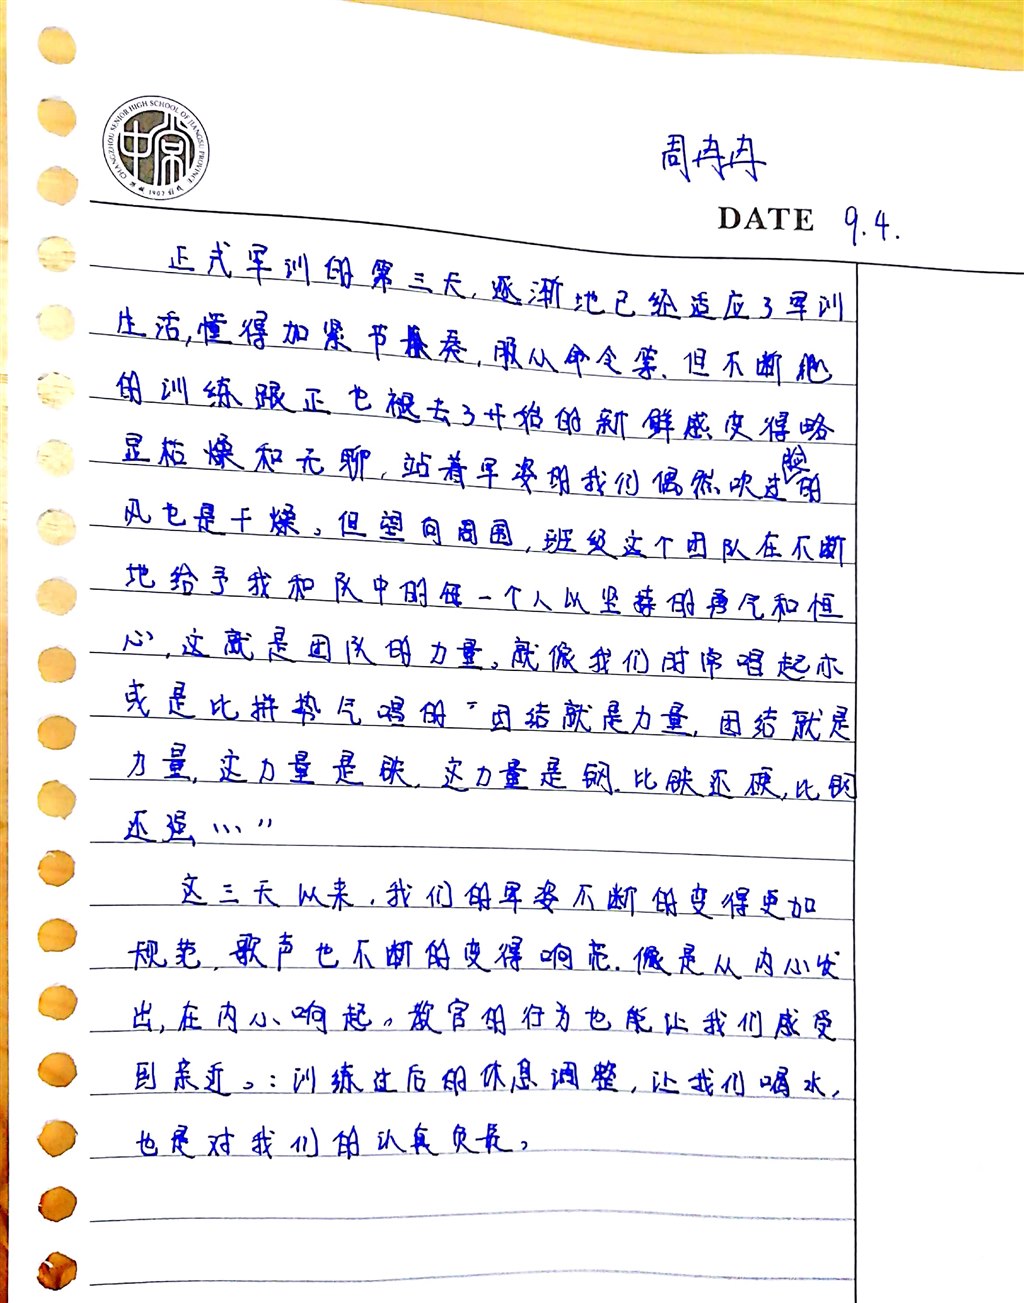 CHANGZHOU SENIOR HIGH SCHOOL OF JIANGSU PROVINCE
1907
周冉冉
DATE 9.4.
正式军训的第三天,逐渐地已经适应了军训
生活,懂得加紧节奏,服从命令等.但不断地
的训练跟正也褪去了开始的新鲜感变得略
显枯燥和无聊,站着军姿的我们偶然吹过脸的
风也是干燥。但望向周围,班级这个团队在不断
地给予我和队中的每一个人以坚持的勇气和恒
心,这就是团队的力量。就像我们时常唱起亦
或是比拼势气唱的“团结就是力量,团结就是
力量,这力量是铁,这力量是钢.比铁还硬,比钢
还强……”
这三天以来,我们的军姿不断的变得更加
规范,歌声也不断的变得响亮.像是从内心发
出,在内心响起。教官的行为也能让我们感受
到亲近。:训练过后的休息调整,让我们喝水,
也是对我们的认真负责。